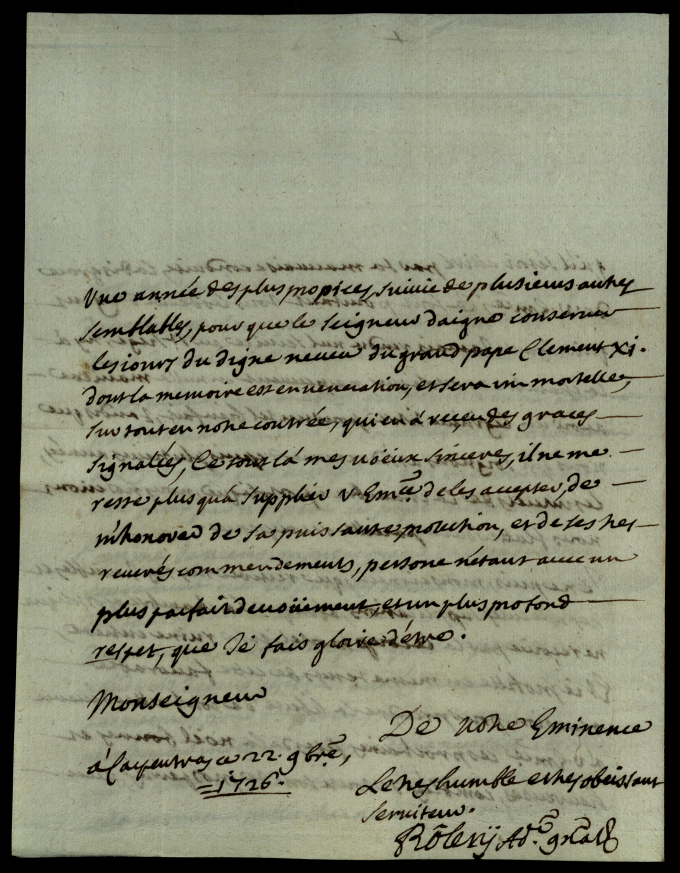 Une année des plus propices, suivie de plusieurs autres
semblables, pour que le seigneur daigne conserver
les iours du digne neveu du grand pape Clement xi.
dont la memoire est en veneration, et sera immortelle,
sur tout en notre contrée, qui en à receu des graces
signalées, Ce sont là mes voeux sinceres, il ne me
reste plus qu'à supplier v Em.ce de les accepter, de
m'honorer de sa puissante protection, et de ses tres
reverés commendements, persone n'étant avec un
plus parfait devoüement et un plus profond
respet, que Je fais gloire d'étre.
Monseigneur
De votre Eminence
à Carpentras ce 22. 9bre,
1726.
Le tres humble et tres obeissant
serviteur.